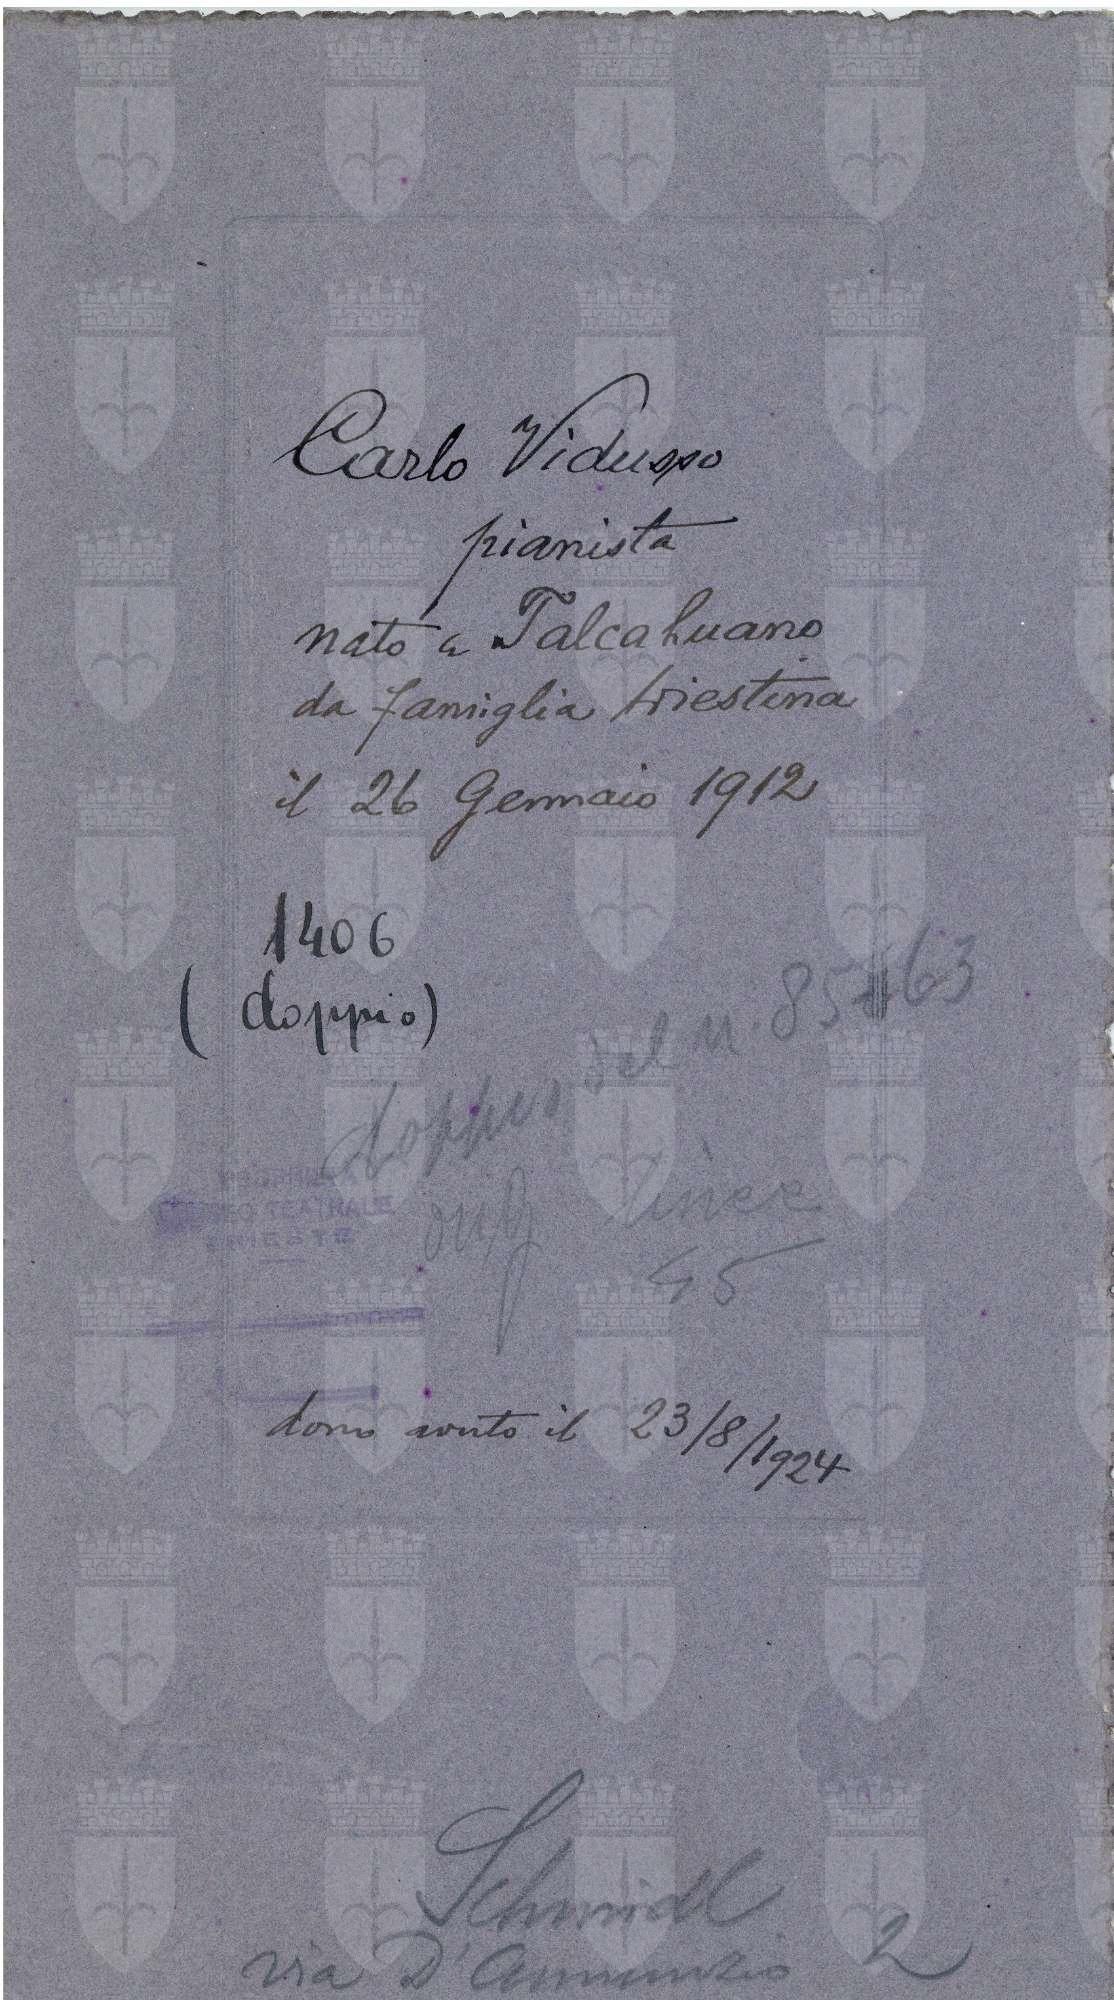 Carlo Vidusso
pianista
nato a Talcahuano
da famiglia triestina
il 26 Gennaio 1912
1406
(doppio)
doppio del n. 85 63
MUSEO TEATRALE
TRIESTE
45
dono avuto il 23/8/1924
Schmidl
via D'Annunzio 2